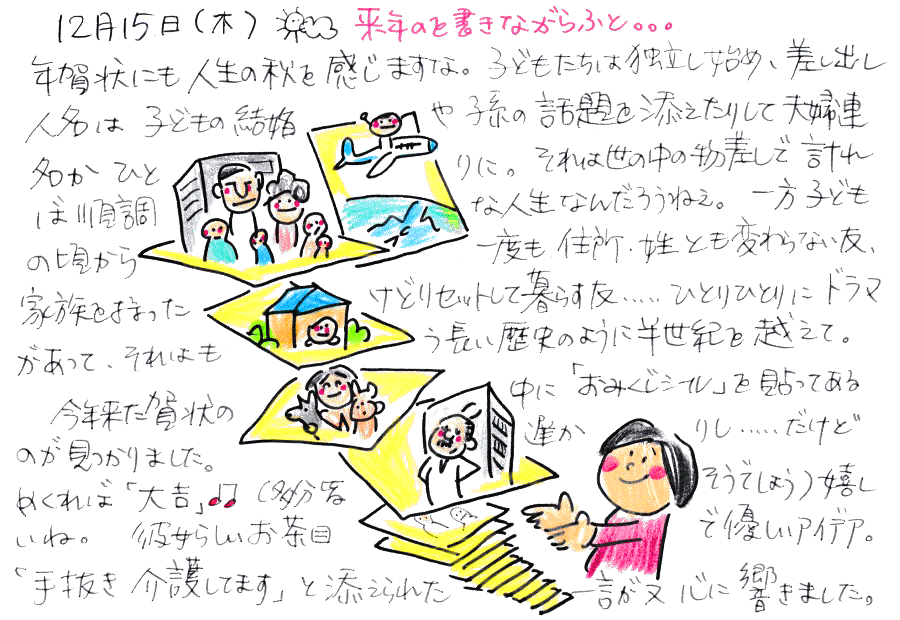 12月15日(木) 来年のを書きながらふと。。。
年賀状にも人生の秋を感じますな。子どもたちは独立し始め、差し出し
人名は子どもの結婚や子孫の話題を添えたりして夫婦連
名かひとりに。それは世の中の物差しで計れ
ば順調な人生なんだろうねぇ。一方子ども
の頃から一度も住所・姓とも変わらない友、
家族を持ったけどリセットして暮らす友……ひとりひとりにドラマ
があって、それはもう長い歴史のように半世紀を越えて。
今年来た賀状の中に「おみくじシール」を貼ってある
のが見つかりました。遅かりし……だけど
めくれば「大吉」♫(多分皆そうでしょう)嬉し
いね。彼女らしいお茶目で優しいアイデア。
「手抜き介護してます」と添えられた一言が又心に響きました。